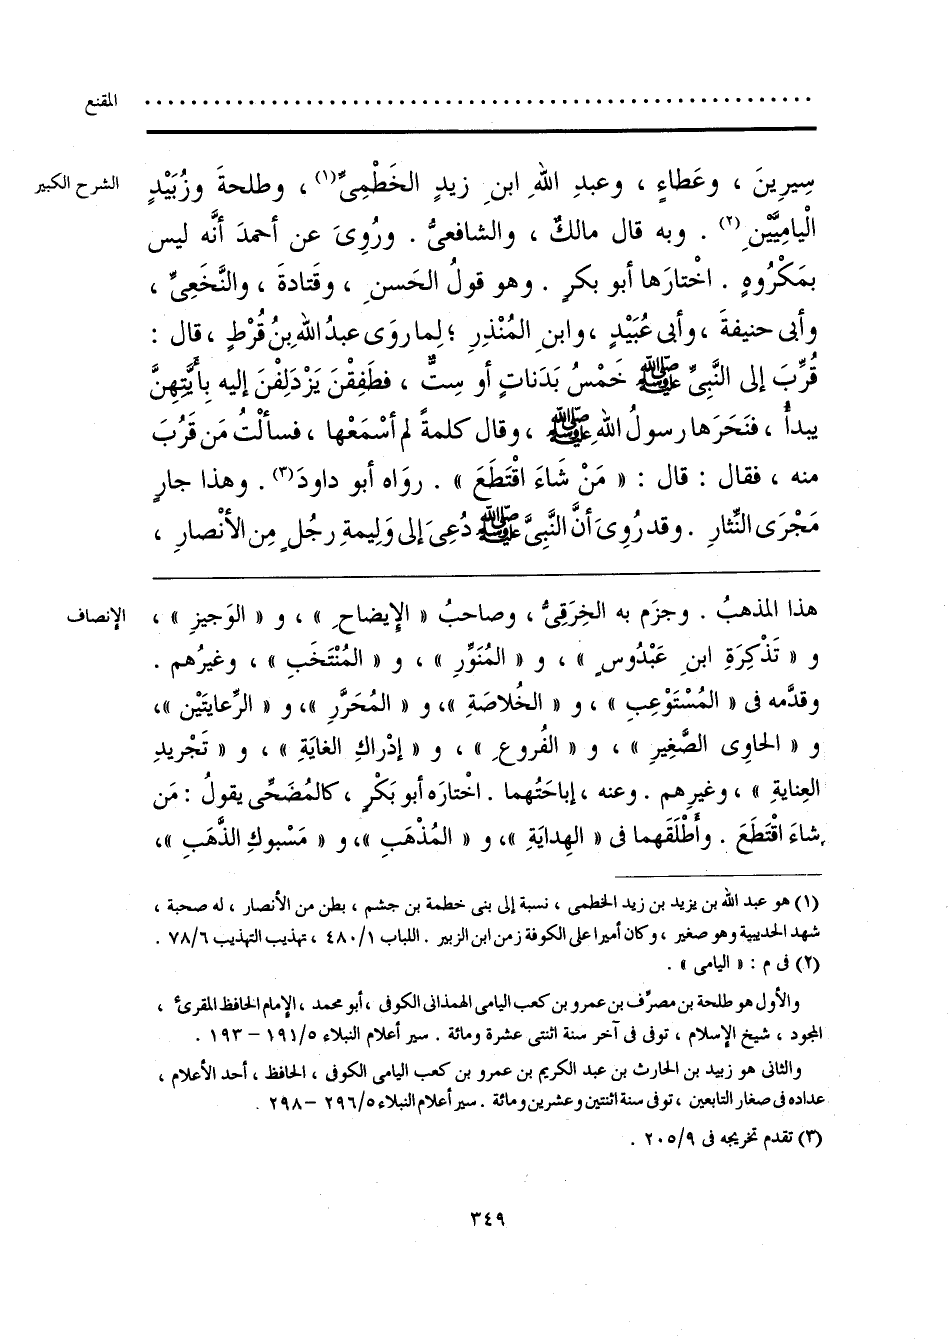 المقنع ....................................................
الشرح الكبير
سِيرِينَ ، وعَطاءٍ ، وعبدِ اللهِ ابنِ زيدٍ الخَطْمِىِّ(١) ، وطلحةَ وزُبَيْدٍ
الْيامِيَّيْنِ(٢) . وبه قال مالكٌ ، والشافعىُّ . ورُوِىَ عن أحمدَ أنَّه ليس
بمَكْرُوهٍ . اخْتارَها أبو بكرٍ . وهو قولُ الحَسنِ ، وقَتادةَ ، والنَّخَعِىِّ ،
وأبى حنيفةَ ، وأبى عُبَيْدٍ ، وابنِ المُنْذِرِ ؛ لِما روَى عبدُ اللهِ بنُ قُرْطٍ ، قال :
قُرِّبَ إلى النَّبِىِّ ﷺ خَمْسُ بَدَناتٍ أو سِتٌّ ، فطَفِقْنَ يَزْدَلِفْنَ إليه بِأيَّتِهِنَّ
يبدأُ ، فنَحَرَها رسولُ اللهِ ﷺ ، وقال كلمةً لم أسْمَعْها ، فسألْتُ مَن قَرُبَ
منه ، فقال : قال : « مَنْ شَاءَ اقْتَطَعَ » . روَاه أبو داودَ(٣) . وهذا جارٍ
مَجْرَى النِّثارِ . وقد رُوِىَ أنَّ النَّبِىَّ ﷺ دُعِىَ إلى وَلِيمةِ رجُلٍ مِن الأنْصارِ ،
الإنصاف
هذا المذهبُ . وجزَم به الخِرَقِىُّ ، وصاحبُ « الإِيضاحِ » ، و « الوَجيزِ » ،
و « تَذْكِرَةِ ابنِ عَبْدُوسٍ » ، و « المُنَوِّرِ » ، و « المُنْتَخَبِ » ، وغيرُهم .
وقدَّمه فى « المُسْتَوْعِبِ » ، و « الخُلاصَةِ »، و « المُحَرَّرِ »، و « الرِّعايتَيْن »،
و « الحاوِى الصَّغِيرِ » ، و « الفُروعِ » ، و « إدْراكِ الغايَةِ » ، و « تَجْريدِ
العِنايةِ » ، وغيرِهم . وعنه ، إباحَتُهما . اخْتارَه أبو بَكْرٍ ، كالمُضَحِّى يقولُ : مَن
شاءَ اقْتَطَعَ . وأَطْلَقَهما فى « الهِدايَةِ »، و « المُذْهَبِ »، و « مَسْبوكِ الذَّهَبِ »،
(١) هو عبد الله بن يزيد بن زيد الخطمى ، نسبة إلى بنى خطمة بن جشم ، بطن من الأنصار ، له صحبة ،
شهد الحديبية وهو صغير ، وكان أميرا على الكوفة زمن ابن الزبير . اللباب ٤٨٠/١ ، تهذيب التهذيب ٧٨/٦ .
(٢) فى م : « اليامى » .
والأول هو طلحة بن مصرِّف بن عمرو بن كعب اليامى الهمذانى الكوفى ، أبو محمد ، الإمام الحافظ المقرئ ،
المجود ، شيخ الإسلام ، توفى فى آخر سنة اثنتى عشرة ومائة . سير أعلام النبلاء ١٩١/٥ – ١٩٣ .
والثانى هو زبيد بن الحارث بن عبد الكريم بن عمرو بن كعب اليامى الكوفى ، الحافظ ، أحد الأعلام ،
عداده فى صغار التابعين ، توفى سنة اثنتين وعشرين ومائة . سير أعلام النبلاء ٢٩٦/٥ – ٢٩٨ .
(٣) تقدم تخريجه فى ٢٠٥/٩ .
٣٤٩